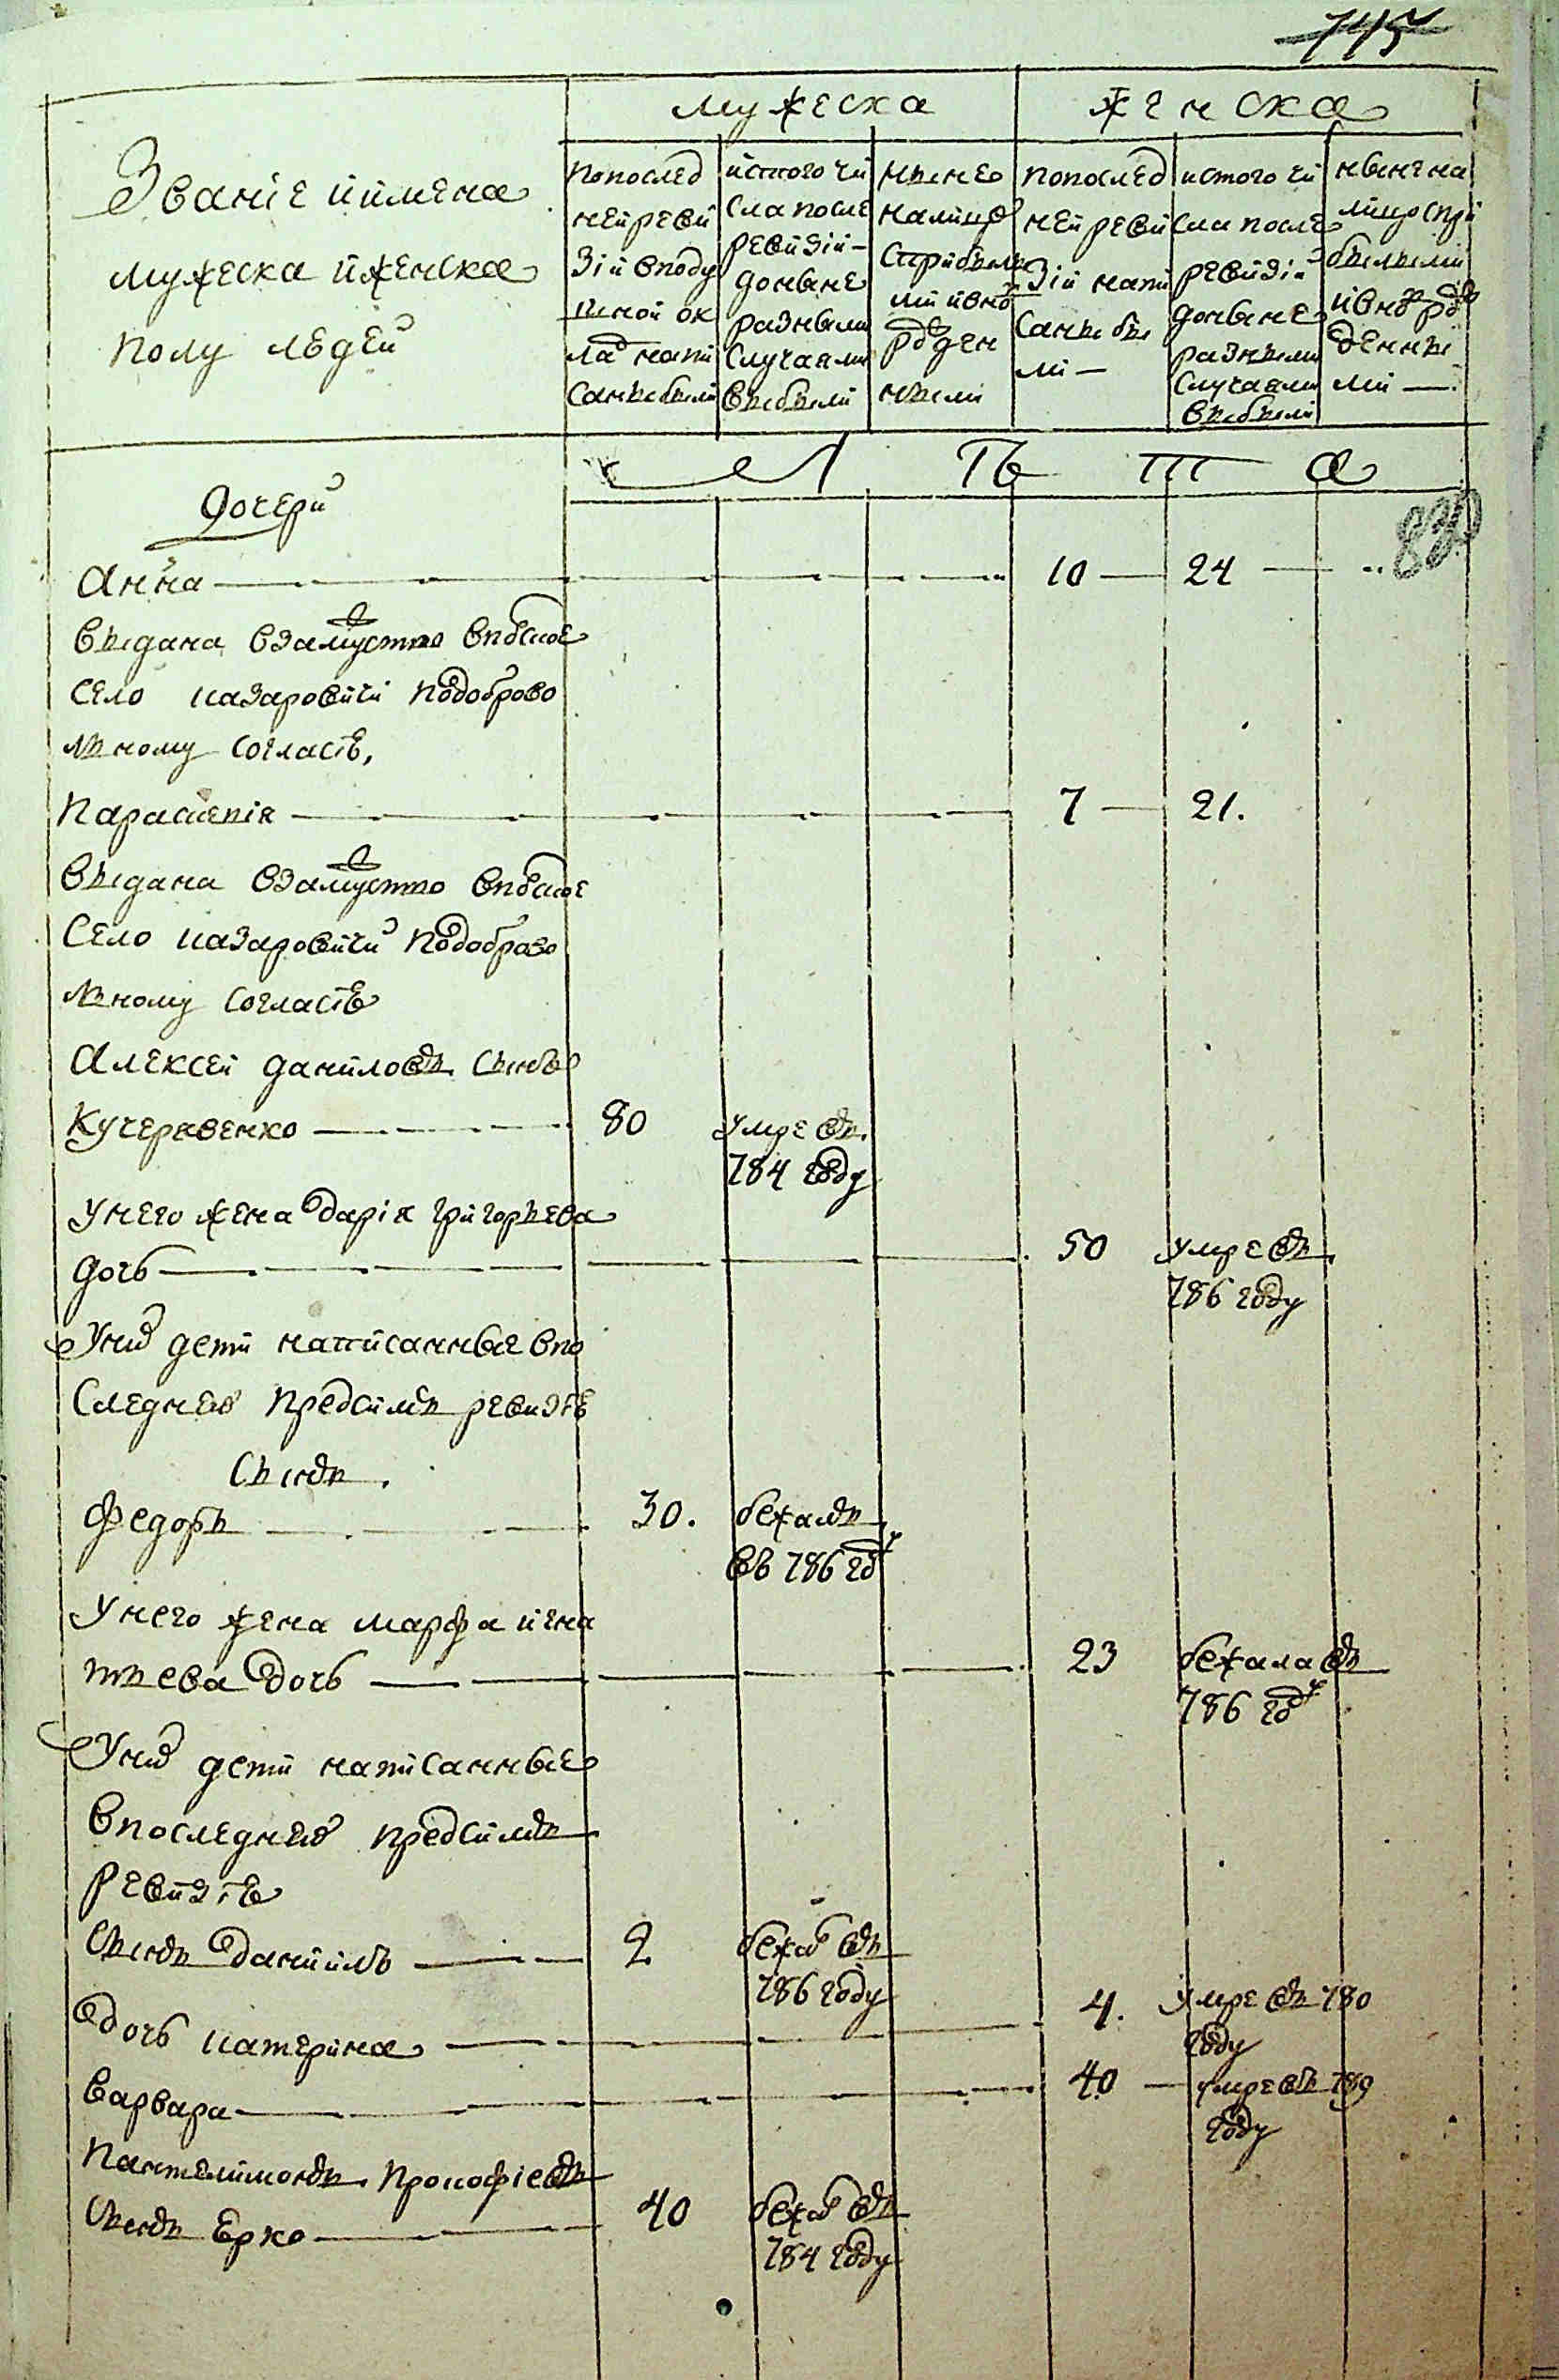 745
мужеска
женска
Званіе и имена
мужеска и женска
полу людей
по послед
ней реви
зіи в поду
шной ок
лад напи
саны были
ис того чи
сла после
ревизіи
до ныне
разными
случаями
выбыли
ныне
на лицо
с прибылы
ми и вно
рожден
ными
по послед
ней реви
зіи напи
саны бы
ли —
ис того чи
сла после
ревизіи
до ныне
разными
случаями
выбыли
ныне на
лицо с при
былыми
и вно рож
денны
ми —
Лѣта
Дочери
Анна 10 24
выдана взамужство в побское
село казаровичи по доброво
льному согласію,
Параскевія 7 21.
выдана взамужство в побское
село казаровичи по доброво
льному согласію
Алексей данилов сынъ
Кучеравенко 80 умре въ
784 году
у него жена дарія григорьева
дочь 50 умре въ
786 году
у них дети написанные в по
следней пред симъ ревизіе
Сынъ
федоръ 30. бежалъ
въ 786 году
у него жена марфа игна
тьева дочь 23 бежала въ
786 году
у них дети написанные
в последней пред симъ
ревизіе
Сынъ даниилъ 2 бежал въ
786 году
дочь катерина 4. умре въ 780
году
варвара 40 умре въ 789
году
Пантелимонъ прокофіевъ
сынъ Ерко 40 бежал въ
784 году